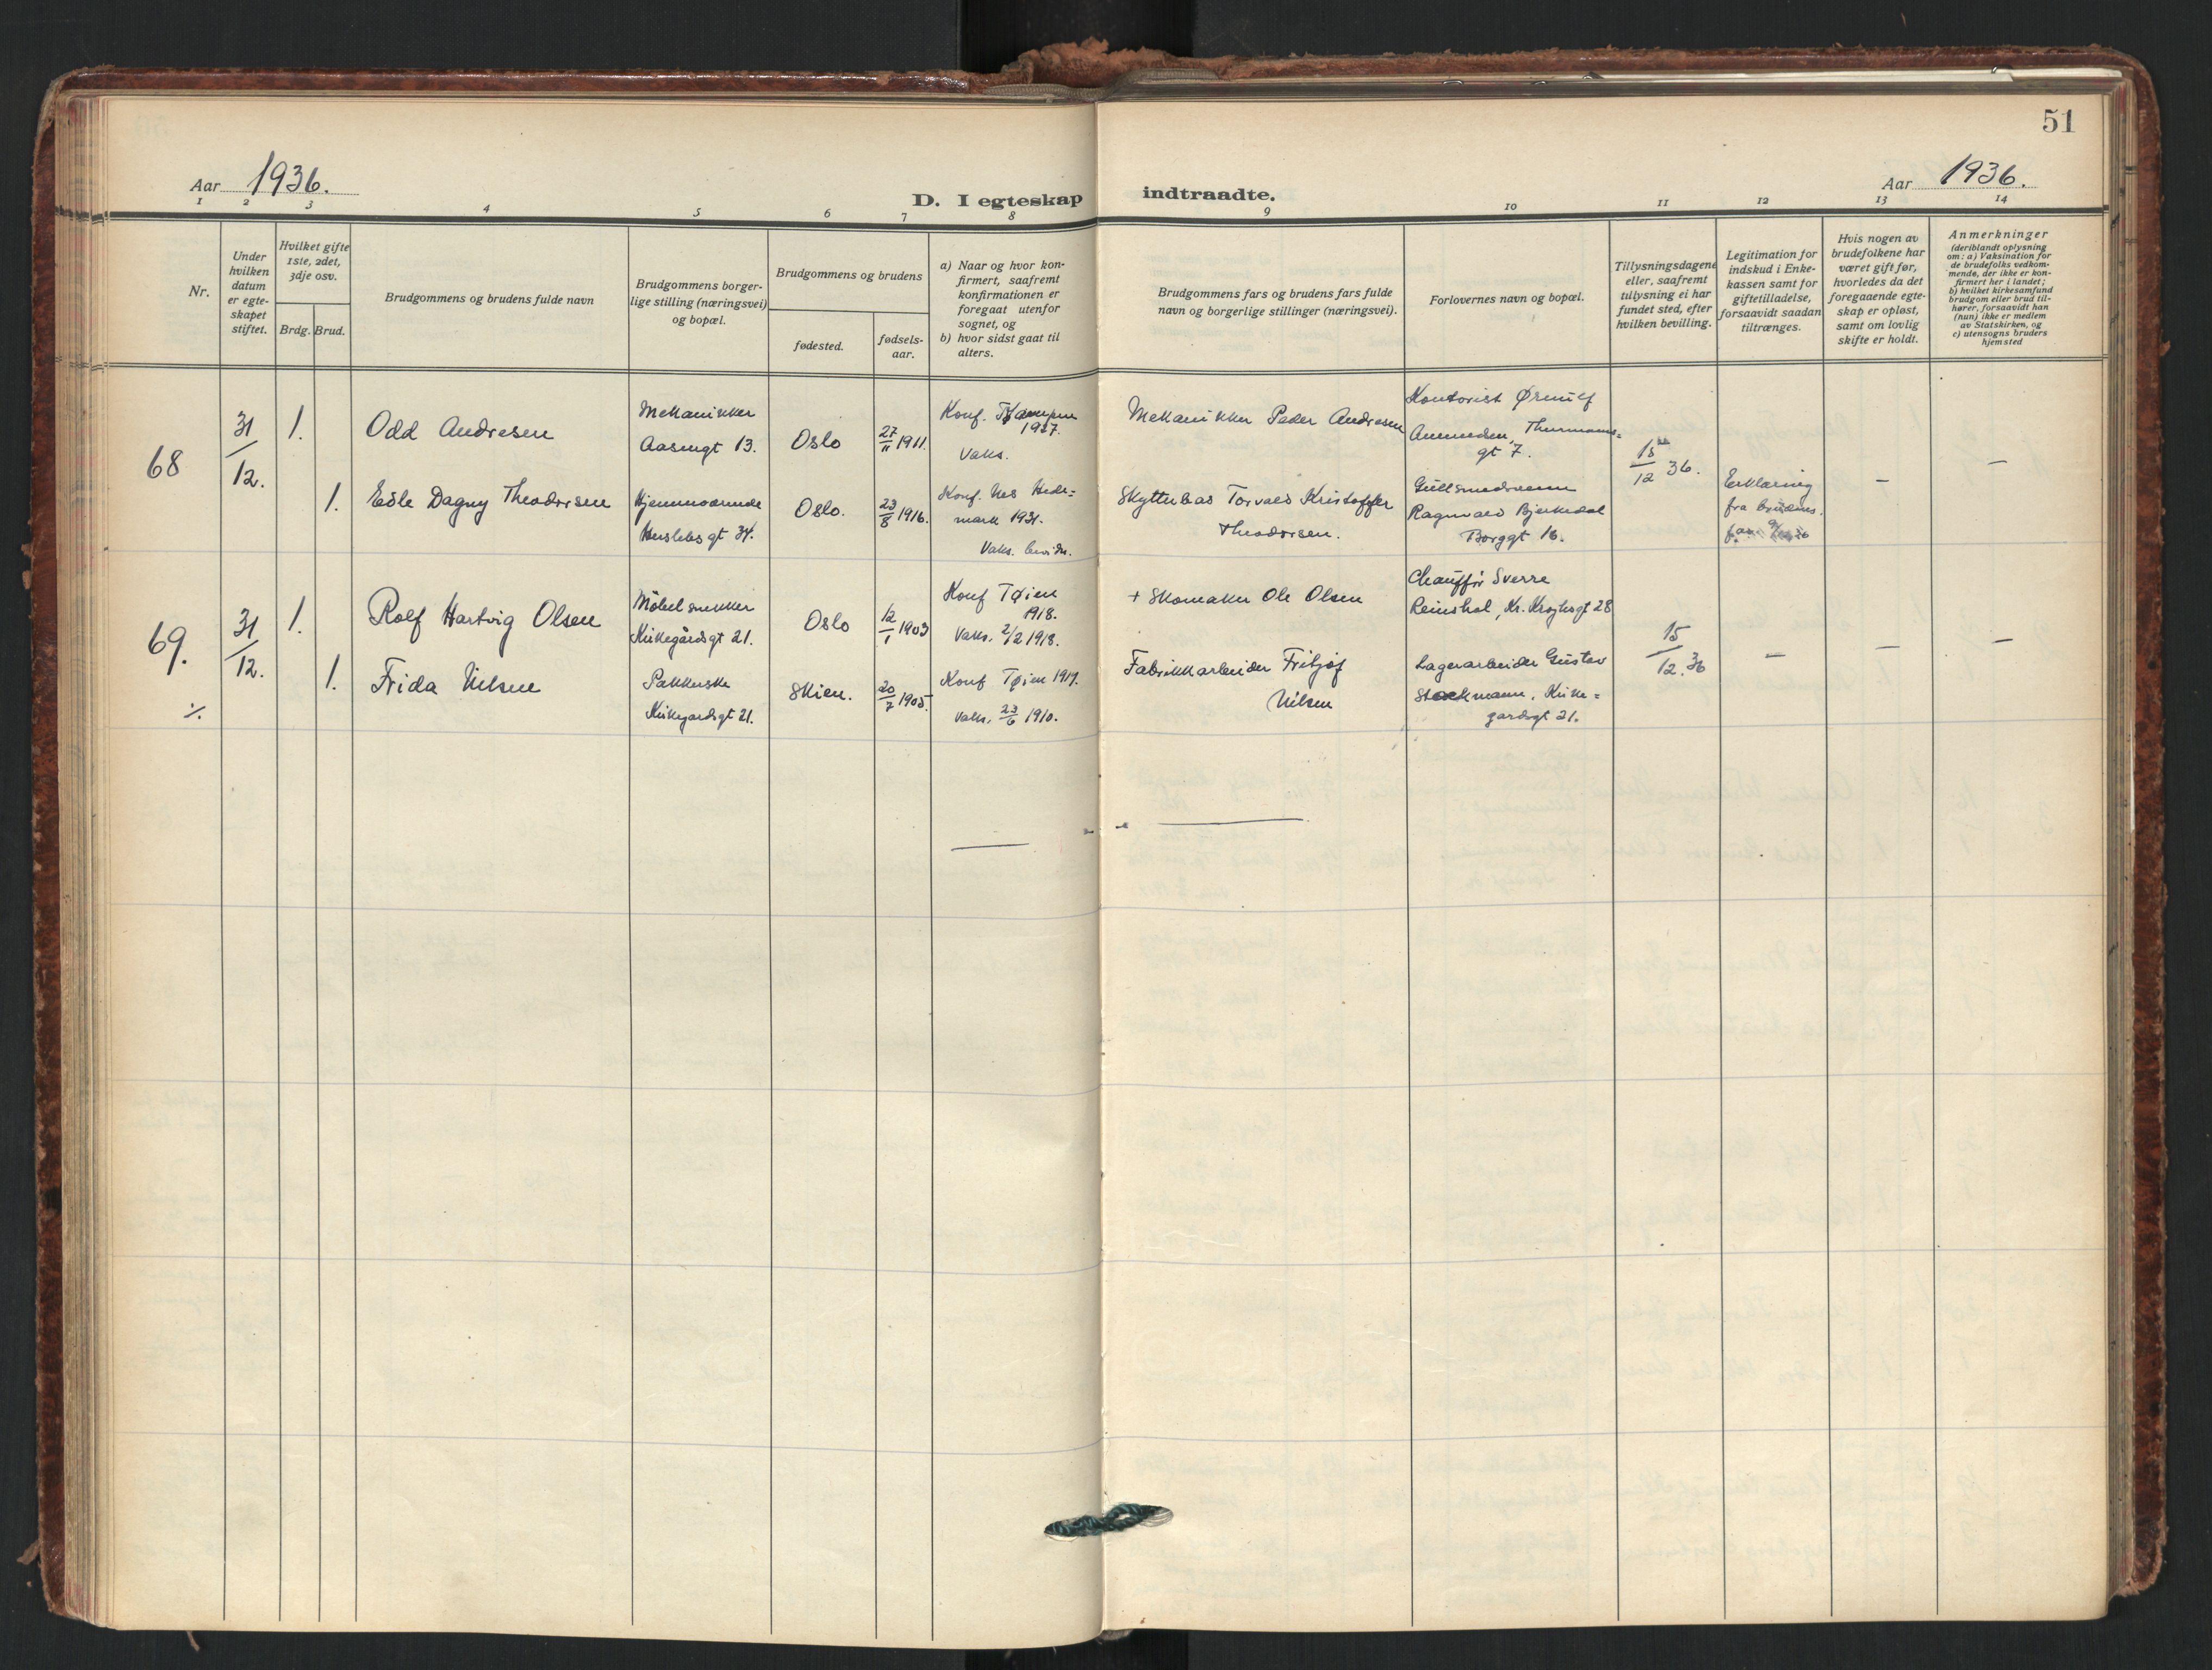 51
Aar 1936.
D. I egteskap indtraadte.
Aar 1936.
1 2 3 4 5 6 7 8 9 10 11 12 13 14
Nr.
Under
hvilken
datum
er egte-
skapet
stiftet.
Hvilket gifte
1ste, 2det,
3dje osv.
Brdg. Brud.
Brudgommens og brudens fulde navn
Brudgommens borger-
lige stilling (næringsvei)
og bopæl.
Brudgommens og brudens
fødested.
fødsels-
aar.
a) Naar og hvor kon-
firmert, saafremt
konfirmationen er
foregaat utenfor
sognet, og
b) hvor sidst gaat til
alters.
Brudgommens fars og brudens fars fulde
navn og borgerlige stillinger (næringsvei).
Forlovernes navn og bopæl.
Tillysningsdagene
eller, saafremt
tillysning ei har
fundet sted, efter
hvilken bevilling.
Legitimation for
indskud i Enke-
kassen samt for
giftetilladelse,
forsaavidt saadan
tiltrænges.
Hvis nogen av
brudefolkene har
været gift før,
hvorledes da det
foregaaende egte-
skap er opløst,
samt om lovlig
skifte er holdt.
Anmerkninger
(deriblandt oplysning
om: a) Vaksination for
de brudefolks vedkom-
mende, der ikke er kon-
firmert her i landet;
b) hvilket kirkesamfund
brudgom eller brud til-
hører, forsaavidt han
(hun) ikke er medlem
av Statskirken, og
c) utensogns bruders
hjemsted
68
31/12.
1.
Odd Andresen
Mekanikker
Aasengt 13.
Oslo
27/11 1911.
Konf. Kampen
1927.
Vaks.
Mekanikker Peder Andresen
Kontorist Ørnulf
Amundsen, Thurmanns=
gt 7.
15/12 36.
1.
Edle Dagny Theodorsen
Hjemmeværende
Herslebs gt 34.
Oslo.
23/8 1916.
Konf. Nes Hede=
mark 1931.
Vaks. bevidn.
Skyttebas Torvald Kristoffer
Theodorsen.
Gullsmedsvenn
Ragnvald Bjerkedal
Borggt 16.
Erklæring
fra brudens
far
–
–
69.
31/12.
1.
Rolf Hartvig Olsen
Möbelsnekker
Kirkegårdsgt 21.
Oslo
12/1 1903
Konf Tøien
1918.
Vaks. 2/2 1918.
+ Skomaker Ole Olsen
Chauffør Sverre
Reinshol, Kr. Kroghsgt 28
15/12. 36
–
–
–
./.
1.
Frida Nilsen
Pakkerske
Kirkegardsgt 21.
Skien.
20/7 1905.
Konf Tøien 1919.
Vaks. 23/6 1910.
Fabrikkarbeider Fritjof
Nilsen
Lagerarbeider Gustav
Stockmann, Kirke=
gardsgt 21.